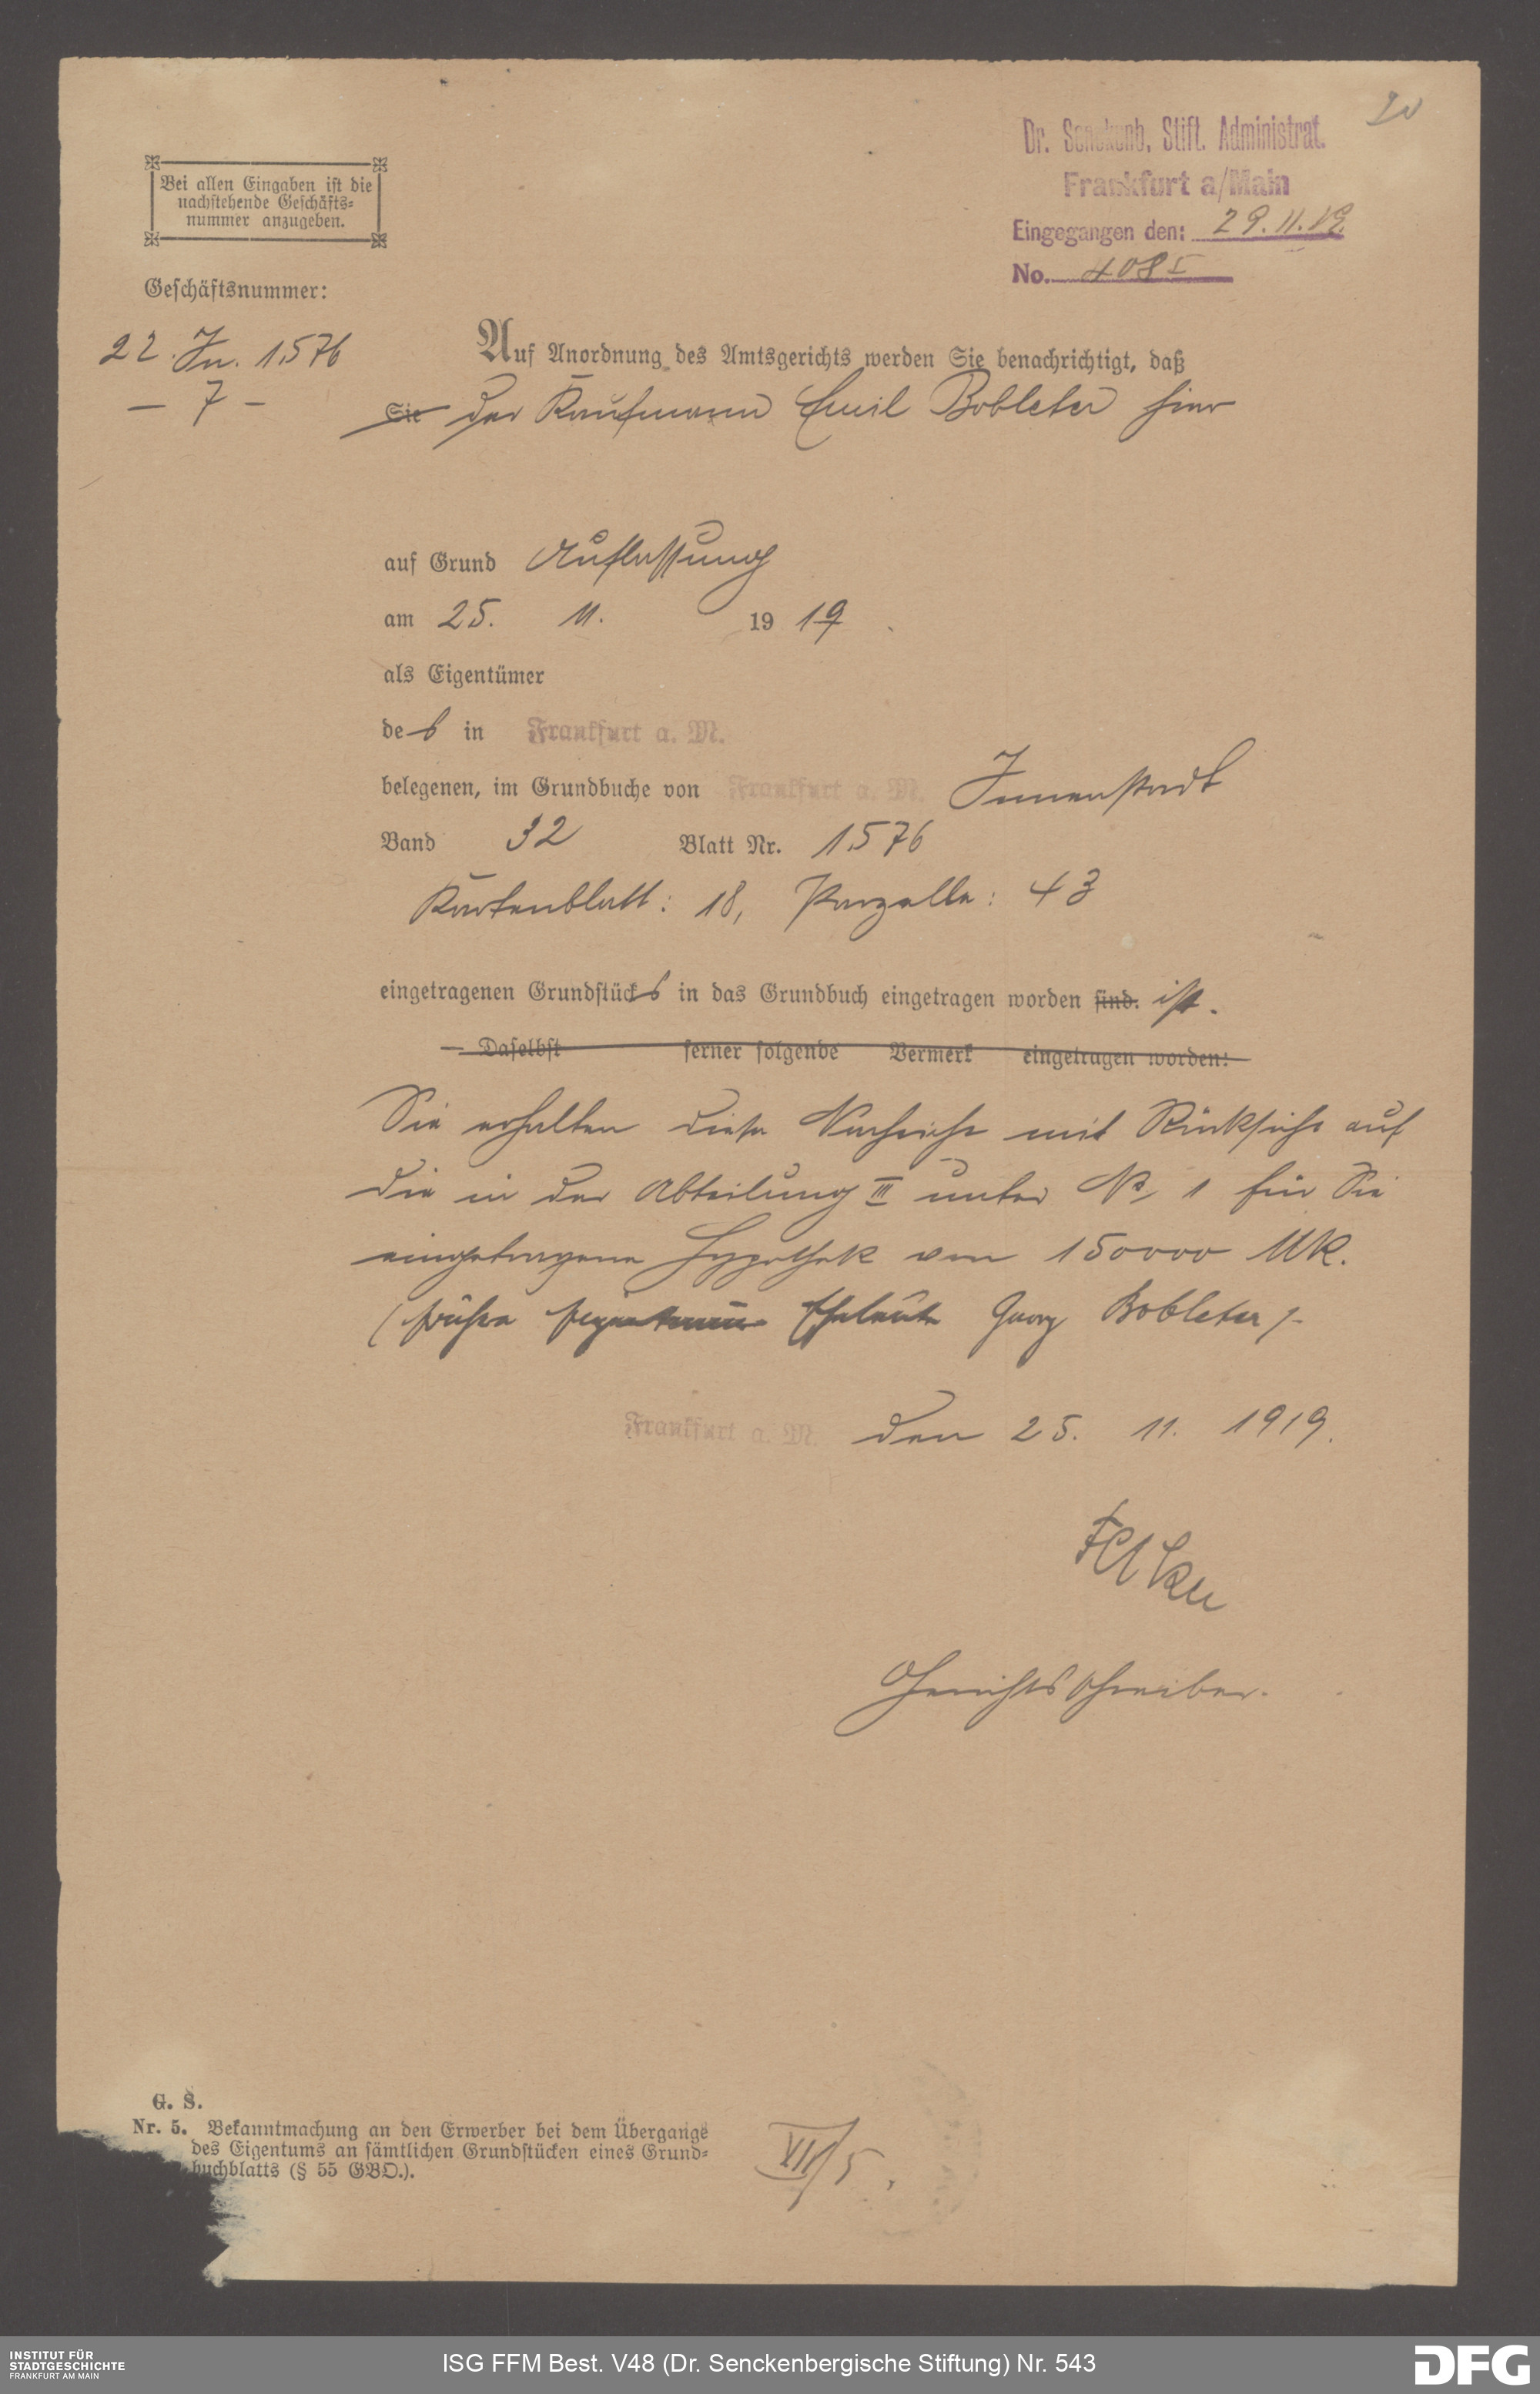 Dr. Senckenb. Stift. Administrat.
Frankfurt a/Main
Eingegangen den: 29.11.19.
No. 4085
Bei allen Eingaben ist die
nachstehende Geschäfts-
nummer anzugeben.
Geschäftsnummer:
22. In. 1576
– 7 –
Auf Anordnung des Amtsgerichts werden Sie benachrichtigt, daß
Sie der Kaufmann Emil Bobleter hier
auf Grund Auflassung
am 25. 11. 19 19
als Eigentümer
des in Frankfurt a. M.
belegenen, im Grundbuche von Frankfurt a. M. Innenstadt
Band 32 Blatt Nr. 1576
Kartenblatt: 18, Parzelle: 43
eingetragenen Grundstücks in das Grundbuch eingetragen worden sind. ist.
Daselbst ferner folgende Vermerk eingetragen worden:
Sie erhalten diese Nachricht mit Rücksicht auf
die in der Abteilung III unter No 1 für Sie
eingetragene Hypothek von 150000 Mk.
(früher Eheleute Georg Bobleter)
Frankfurt a. M. den 25. 11. 1919.
Gerichtsschreiber.
G. S.
Nr. 5. Bekanntmachung an den Erwerber bei dem Übergange
des Eigentums an sämtlichen Grundstücken eines Grund-
buchblatts (§ 55 GBO.).
VII/5.
INSTITUT FÜR
STADTGESCHICHTE
FRANKFURT AM MAIN
ISG FFM Best. V48 (Dr. Senckenbergische Stiftung) Nr. 543
DFG